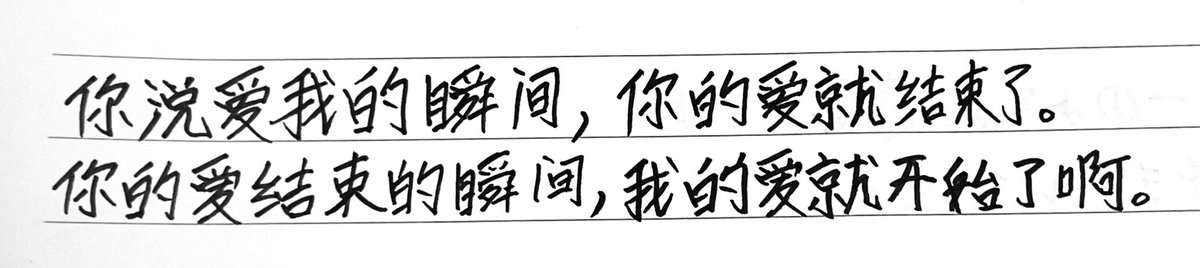 你说爱我的瞬间，你的爱就结束了。
你的爱结束的瞬间，我的爱就开始了啊。